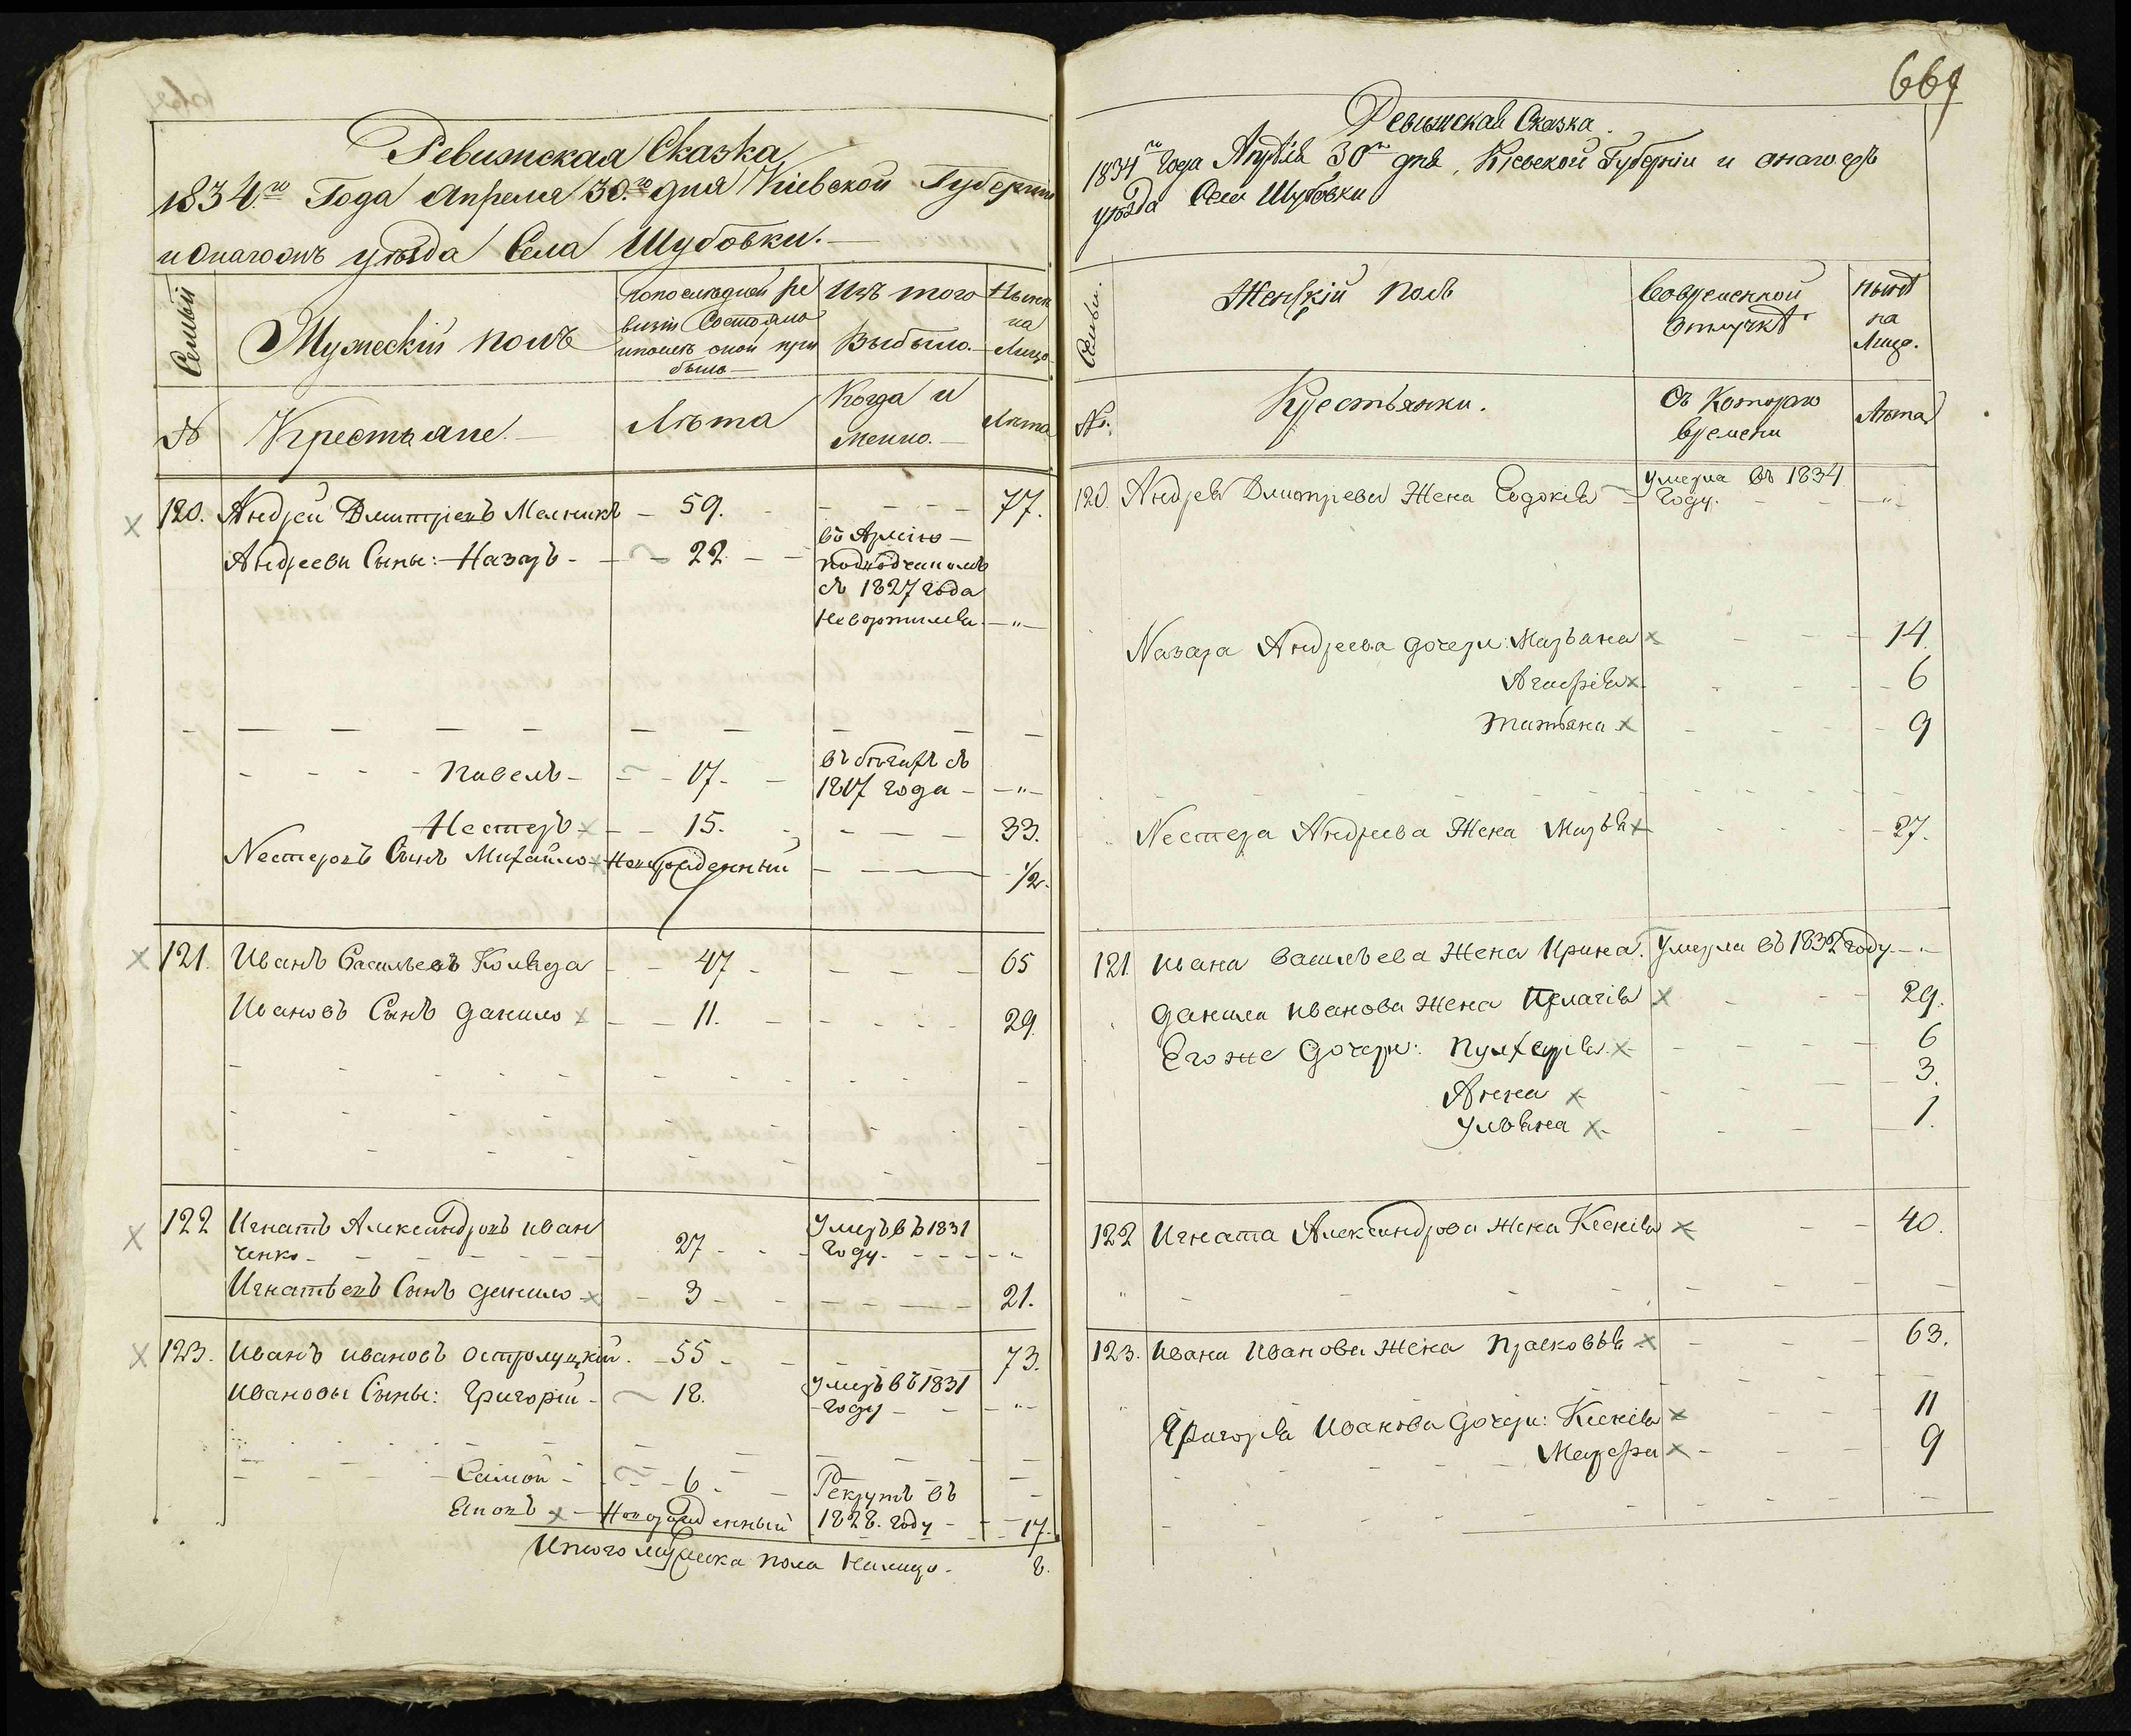 Ревижская Сказка
1834.го Года Апреля 30.го дня Кіевской Губерніи
и Онагожъ уѣзда Села Шубовки.
Семьи
Мужескій полъ
По последней ре
визіи Состояло
и после оной при
было
Изъ того
Выбыло.
Ныне
на
Лицо
№
Крестьяне.
Лѣта
Когда и
Менно.
Лѣта
120. Андрей Дмитріевъ Мельникъ 59. 77.
Андреевы Сыны: Назаръ 22
въ Армію
подводчикомъ
съ 1827 года
Невортился "
Павелъ 17
въ бѣгахъ съ
1817 года "
Нестеръ 15. 33.
Нестеровъ Сынъ Михайло Новорожденный 1/2.
121. Иванъ Васильевъ Коляда 47 65
Ивановъ Сынъ Данило 11. 29.
122 Игнатъ Александровъ Иван
ченко 27
Умеръ въ 1831
Году. "
Игнатьевъ Сынъ Данило 3 21.
123. Иванъ Ивановъ Остролуцкій. 55 73.
Ивановы Сыны: Григорій 18.
Умеръ въ 1831
Году "
Самой 6
Рекрутъ въ
1828. Году
Новорожденный 17.
Итого мужеска пола Налицо. 8.
669
Ревижская Сказка.
1834го Года Апрѣля 30го дня, Кіевской Губерніи и онагожъ
уѣзда Села Шубовки
Семьи.
Женскій полъ
Вовременной
Отлучкѣ
нынѣ
на
Лицо.
№.
Крестьянки.
Съ Котораго
времени
Лѣта
120. Андрея Дмитріева Жена Евдокія
Умерла въ 1834
Году. "
Назара Андреева дочери: Марьяна 14.
Агафія 6
Татьяна 9
Нестера Андреева Жена Марья 27.
121 Ивана Васильева Жена Ирина. Умерла въ 1832 году "
Данила Иванова Жена Пелагія 29.
Его же Дочери: Пулхерія 6
Анна 3.
Ульяна 1.
122 Игната Александрова Жена Ксенія 40.
123. Ивана Иванова Жена Прасковья 63.
Григорія Иванова Дочери: Ксенія 11
Марфа 9